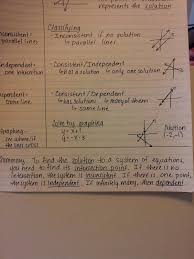 represents the solution
Classifying
Inconsistent
Inconsistent if no solution
parallel lines
parallel lines
Independent
Consistent/Independent
one intersection
has a solution, only one solution
Dependent
Consistent/Dependent
same line
has solutions, many of them
same line
Graphing
Solve by graphing
y = x + 1
y = -x - 3
Solution
(-2, -1)
Summary: To find the solution to a system of equations,
you need to find its intersection point. If there is no
intersection, the system is inconsistent. If there is one point,
the system is independent. If infinitely many, then dependent.